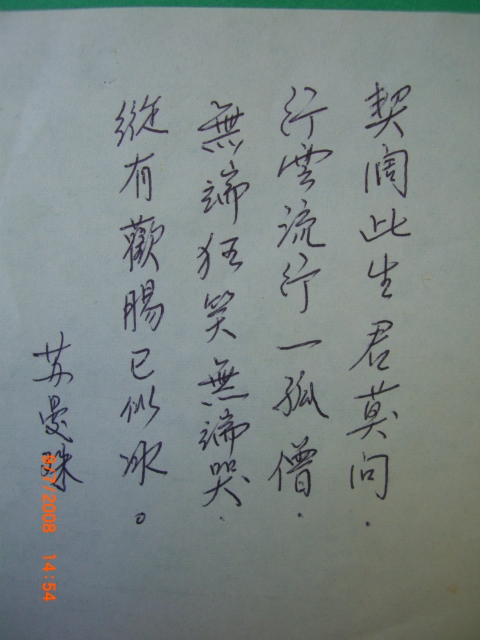 契阔此生君莫问.
行雲流行一孤僧.
無端狂笑無端哭.
縱有歡腸已似冰。
苏曼殊
8/7/2008 14:54